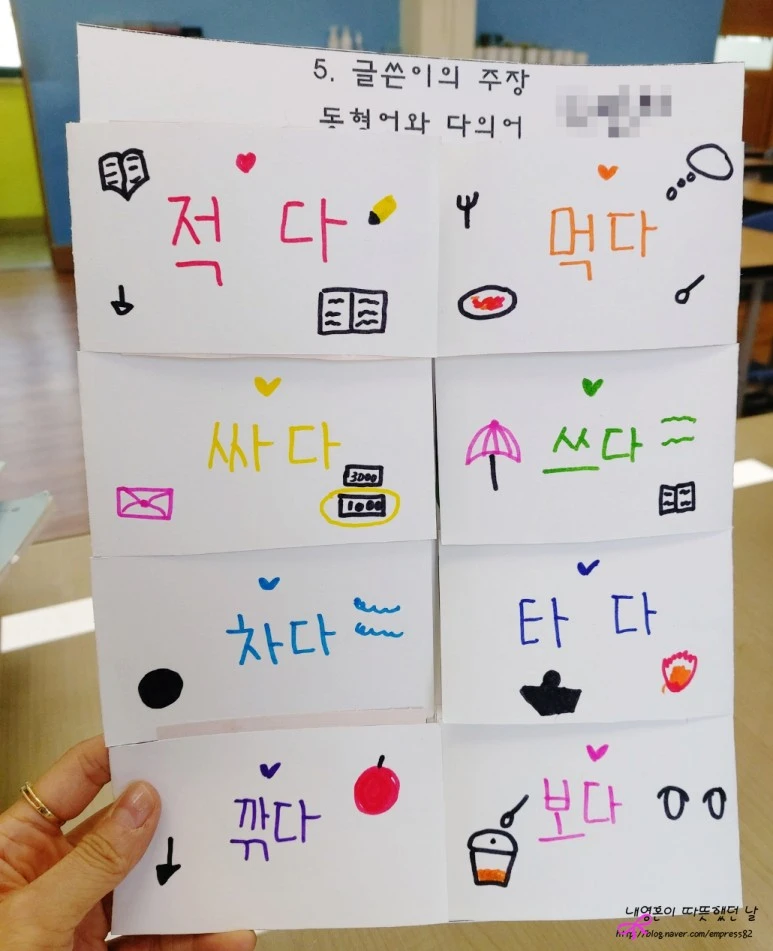 5. 글쓴이의 주장
동형어와 다의어
적다
먹다
싸다
3000
1000
쓰다
차다
타다
깎다
보다
내영혼이 따뜻했던 날
http://blog.naver.com/empress82